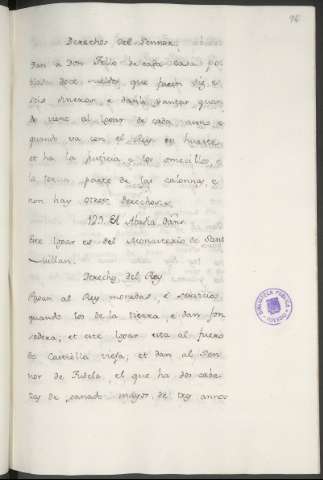 96
Derechos del Sennor.
Dan a Don Tello de cada casa por
doce sueldos que facen diz e
seis e danle yantar quan
do viene al logar de cada anno e
quando va con el Rey en hueste,
et ha la justicia e los omecillos, e
la tercia parte de las calonnas, e
non hay otros derechos.
129. El
Este logar es del Monasterio de Sant
Millan.
Derechos del Rey
Pagan al Rey monedas, e servicios
quando los de la tierra e dan fon
sadera; et este logar esta al fuero
de Castiella vieja; et dan al Sen
nor de Tudela, el que ha dos cabe
zas de ganado mayor de tres annos
BIBLIOTECA PUBLICA
TOLEDO